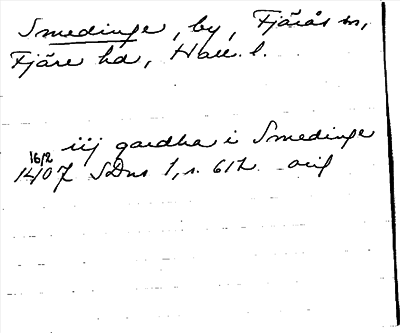 Smedinge, by, Fjärås sn,
Fjäre hd, Hall. l.
iij gardha i Smedinge
16/2
1407 SDns 1, s. 612 orig